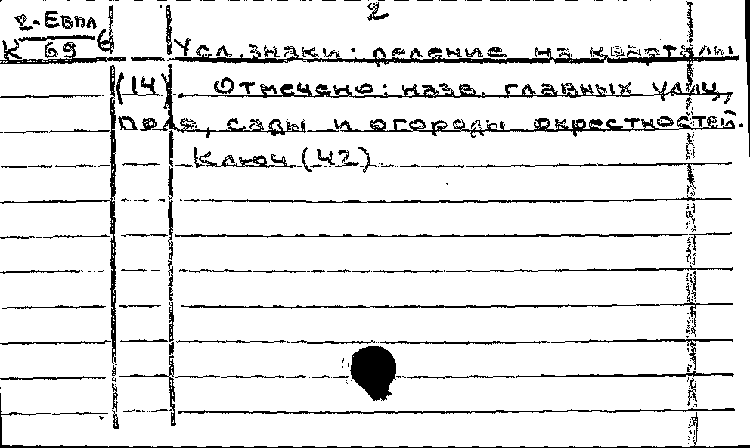 2
2-Евпл
К 69
Усл. знаки: деление на кварталы
(14). Отмечено: назв. главных улиц,
поля, сады и огороды окрестностей.
Ключ (42)